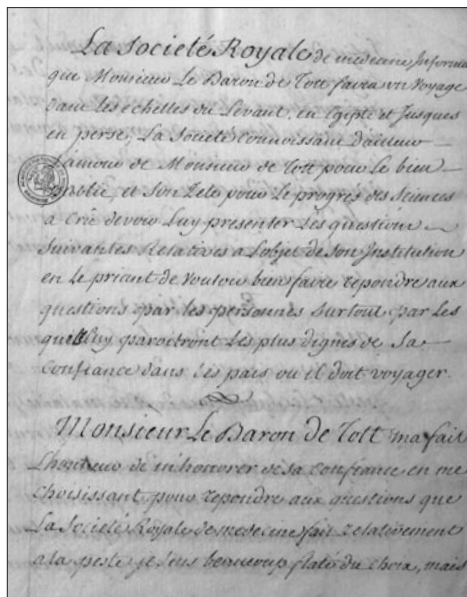 La Societé Royale de medecine Informée
que Monsieur Le Baron de Tott faira un Voyage
dans les echelles du Levant, en Egipte et Jusques
en perse, La Societé Connoissant d'ailleurs
L'amour de Monsieur de Tott pour Le bien
Public, et Son Zele pour Le progrès des Sciences
a Crû devoir Luy presenter Les questions
Suivantes Relatives a L'objet de son Institution
en Le priant de Vouloir bien faire repondre aux
questions par les personnes Surtout par Les
quelles Luy paroitront Les plus dignes de Sa
Confiance dans Les païs ou il doit voyager.
Monsieur Le Baron de Tott m'a fait
L'honneur de m'honnorer de sa confiance en me
choisissant pour repondre aux questions que
La Societé Royale de medecine fait relativement
a la peste, je suis beaucoup flaté du choix, mais